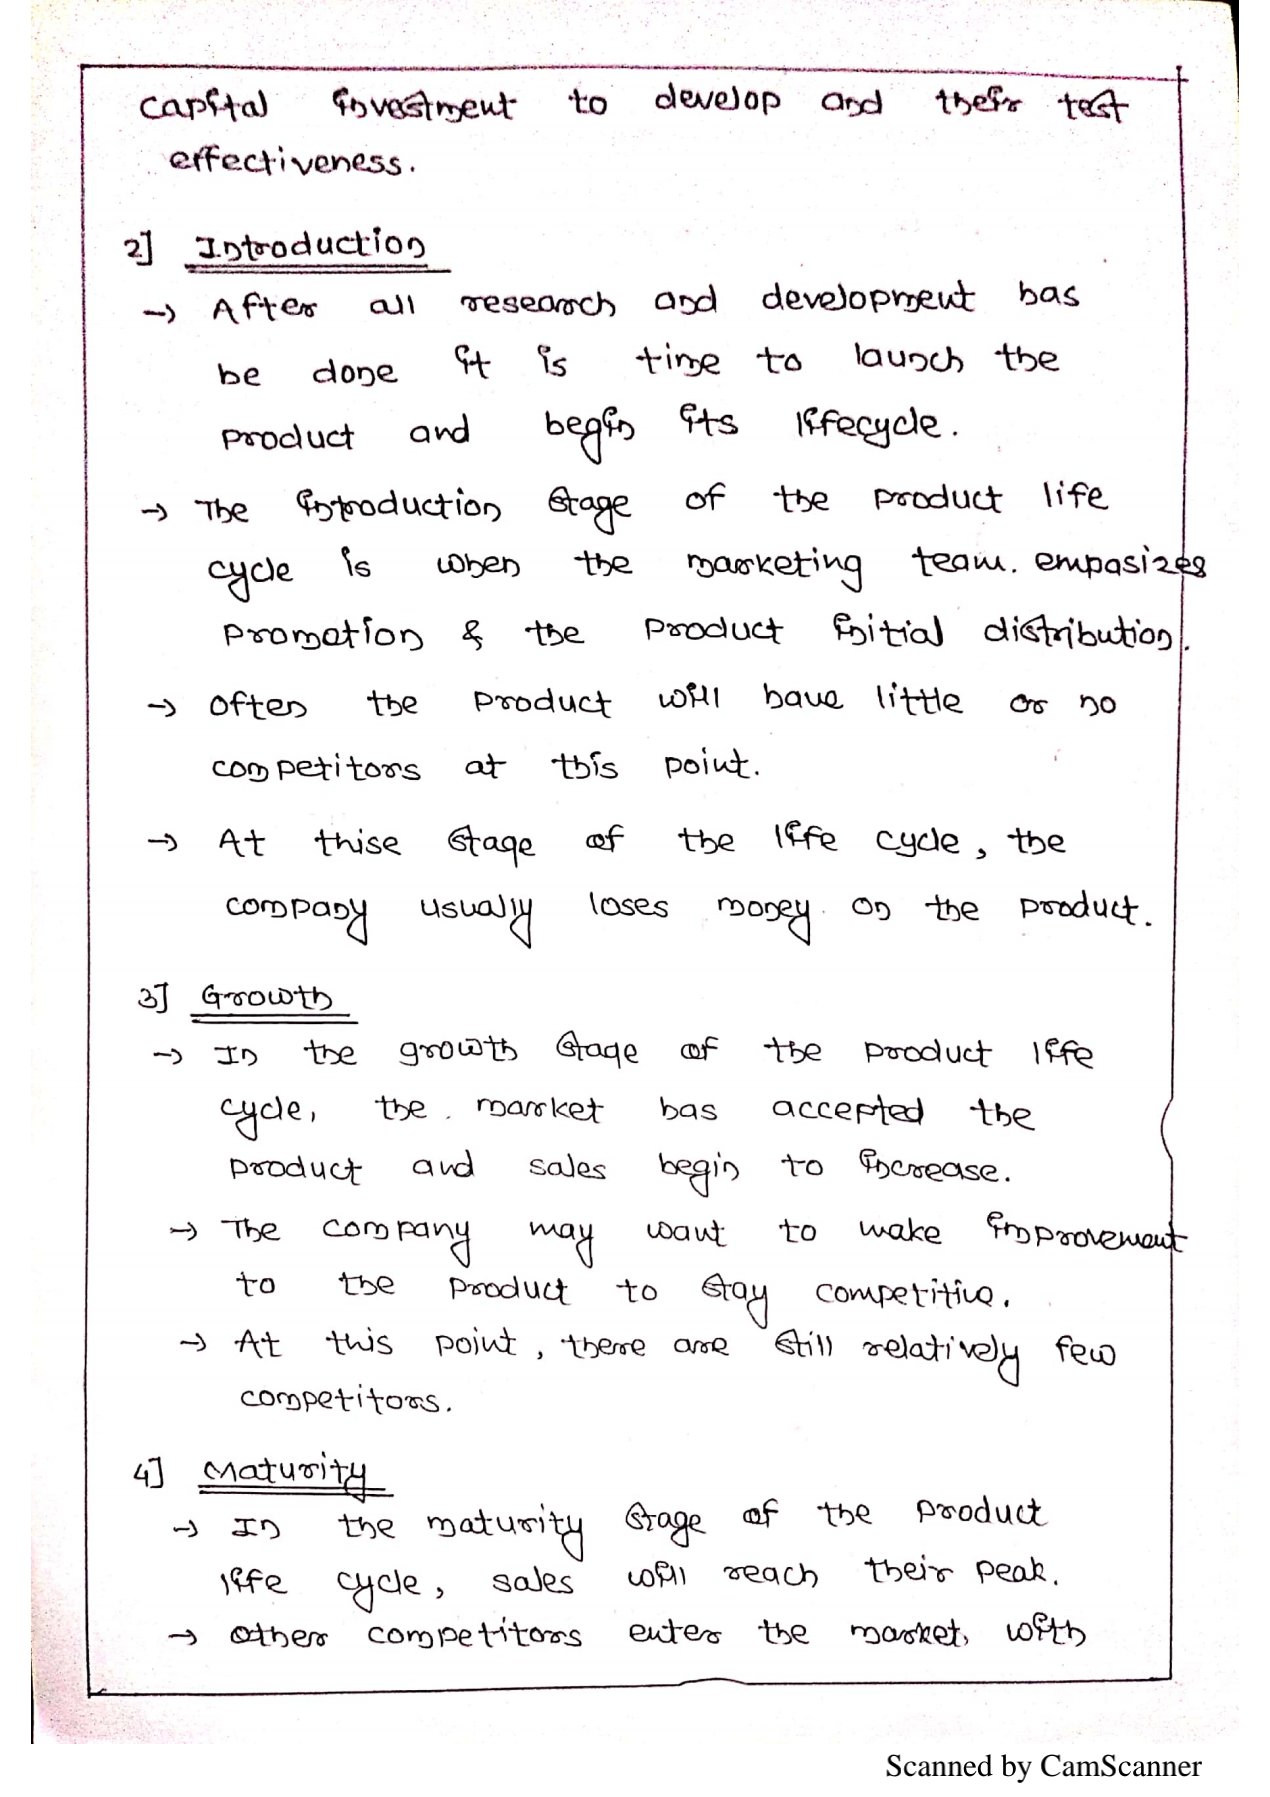 capital investment to develop and their test
effectiveness.
2] Introduction
→ After all research and development has
be done it is time to launch the
product and begin its lifecycle.
→ The introduction stage of the product life
cycle is when the marketing team. empasizes
promotion & the product initial distribution.
→ often the product will have little or no
competitors at this point.
→ At thise stage of the life cycle, the
company usually loses money on the product.
3] Growth
→ In the growth stage of the product life
cycle, the market has accepted the
product and sales begin to increase.
→ The company may want to make improvement
to the product to stay competitive.
→ At this point, there are still relatively few
competitors.
4] Maturity
→ In the maturity stage of the product
life cycle, sales will reach their peak.
→ other competitors enter the market, with
Scanned by CamScanner